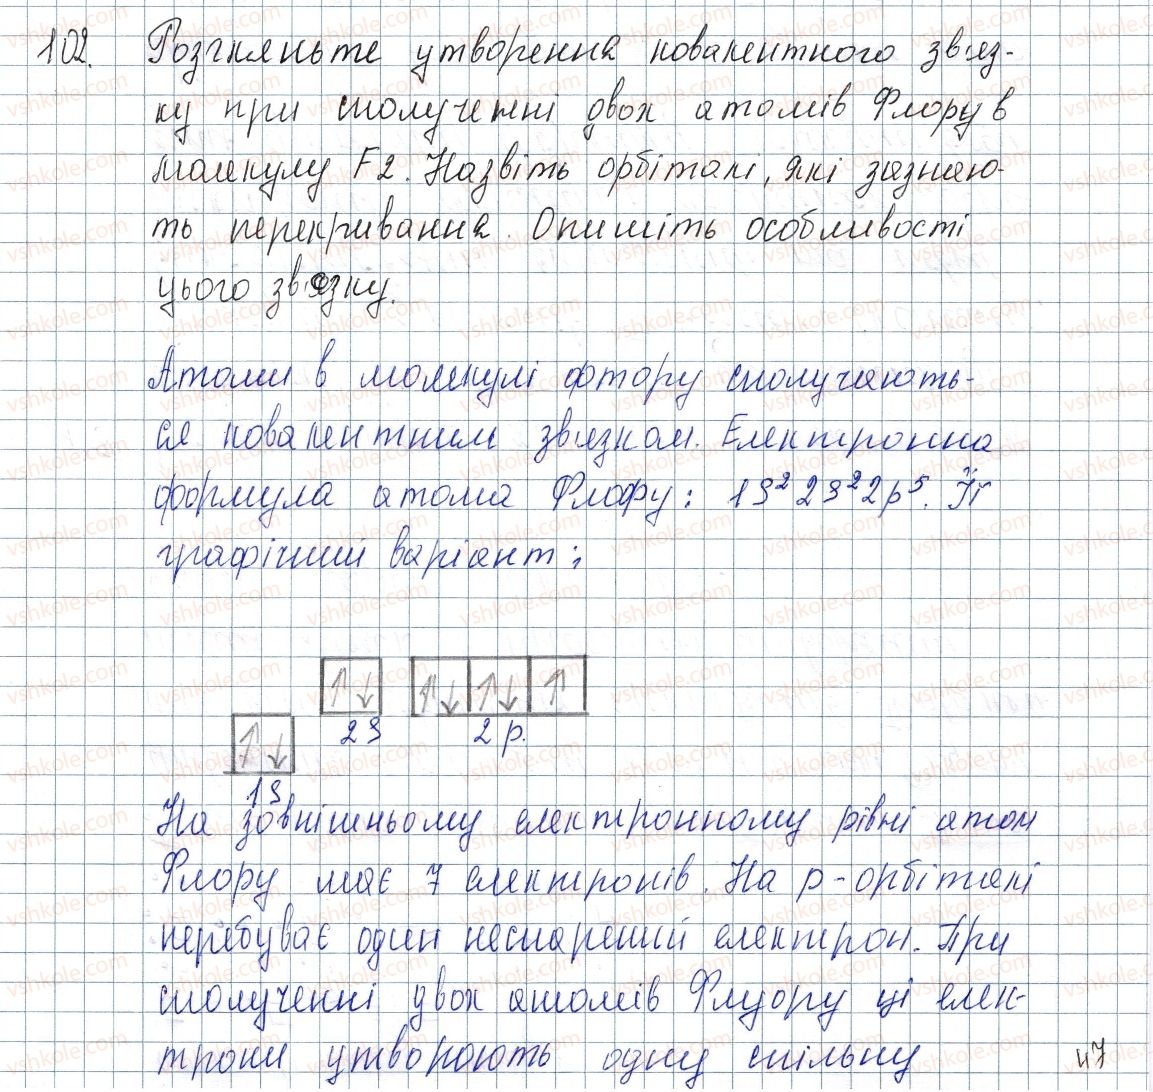 102. Розгляньте утворення ковалентного зв'яз-
ку при сполученні двох атомів Флору в
молекулу F2. Назвіть орбіталі, які зазнаю-
ть перекривання. Опишіть особливості
цього зв'язку.
Атоми в молекулі фтору сполучають-
ся ковалентним зв'язком. Електронна
формула атома Флофу: 1s² 2s² 2p⁵. Її
графічний варіант:
↑↓ ↑↓ ↑↓ ↑
2s 2p.
↑↓
1s
На зовнішньому електронному рівні атом
Флору має 7 електронів. На p-орбіталі
перебуває один неспарений електрон. При
сполученні двох атомів Флуору ці елек-
трони утворюють одну спільну
47